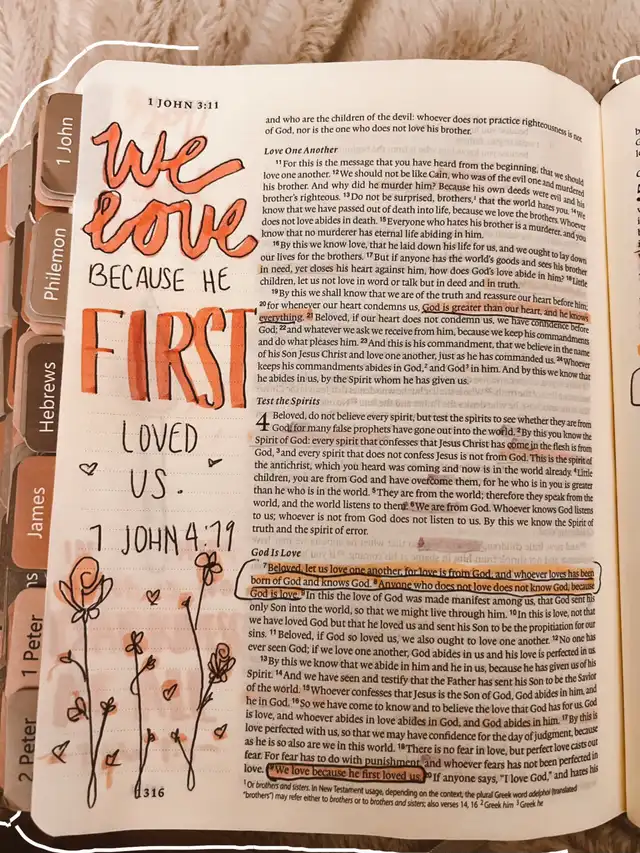 1 John
Philemon
Hebrews
James
1 Peter
2 Peter
1 JOHN 3:11
we
love
BECAUSE HE
FIRST
LOVED
US.
1 JOHN 4:19
1316
and who are the children of the devil: whoever does not practice righteousness is not
of God, nor is the one who does not love his brother.
Love One Another
11 For this is the message that you have heard from the beginning, that we should
love one another. 12 We should not be like Cain, who was of the evil one and murdered
his brother. And why did he murder him? Because his own deeds were evil and his
brother's righteous. 13 Do not be surprised, brothers,1 that the world hates you. 14 We
know that we have passed out of death into life, because we love the brothers. Whoever
does not love abides in death. 15 Everyone who hates his brother is a murderer, and you
know that no murderer has eternal life abiding in him.
16 By this we know love, that he laid down his life for us, and we ought to lay down
our lives for the brothers. 17 But if anyone has the world's goods and sees his brother
in need, yet closes his heart against him, how does God's love abide in him? 18 Little
children, let us not love in word or talk but in deed and in truth.
19 By this we shall know that we are of the truth and reassure our heart before him;
20 for whenever our heart condemns us, God is greater than our heart, and he knows
everything. 21 Beloved, if our heart does not condemn us, we have confidence before
God; 22 and whatever we ask we receive from him, because we keep his commandments
and do what pleases him. 23 And this is his commandment, that we believe in the name
of his Son Jesus Christ and love one another, just as he has commanded us. 24 Whoever
keeps his commandments abides in God,2 and God3 in him. And by this we know that
he abides in us, by the Spirit whom he has given us.
Test the Spirits
4 Beloved, do not believe every spirit, but test the spirits to see whether they are from
God, for many false prophets have gone out into the world. 2 By this you know the
Spirit of God: every spirit that confesses that Jesus Christ has come in the flesh is from
God, 3 and every spirit that does not confess Jesus is not from God. This is the spirit of
the antichrist, which you heard was coming and now is in the world already. 4 Little
children, you are from God and have overcome them, for he who is in you is greater
than he who is in the world. 5 They are from the world; therefore they speak from the
world, and the world listens to them. 6 We are from God. Whoever knows God listens
to us; whoever is not from God does not listen to us. By this we know the Spirit of
truth and the spirit of error.
God Is Love
7 Beloved, let us love one another, for love is from God, and whoever loves has been
born of God and knows God. 8 Anyone who does not love does not know God, because
God is love. 9 In this the love of God was made manifest among us, that God sent his
only Son into the world, so that we might live through him. 10 In this is love, not that
we have loved God but that he loved us and sent his Son to be the propitiation for our
sins. 11 Beloved, if God so loved us, we also ought to love one another. 12 No one has
ever seen God; if we love one another, God abides in us and his love is perfected in us.
13 By this we know that we abide in him and he in us, because he has given us of his
Spirit. 14 And we have seen and testify that the Father has sent his Son to be the Savior
of the world. 15 Whoever confesses that Jesus is the Son of God, God abides in him, and
he in God. 16 So we have come to know and to believe the love that God has for us. God
is love, and whoever abides in love abides in God, and God abides in him. 17 By this is
love perfected with us, so that we may have confidence for the day of judgment, because
as he is so also are we in this world. 18 There is no fear in love, but perfect love casts out
fear. For fear has to do with punishment, and whoever fears has not been perfected in
love. 19 We love because he first loved us. 20 If anyone says, "I love God," and hates his
1 Or brothers and sisters. In New Testament usage, depending on the context, the plural Greek word adelphoi (translated
"brothers") may refer either to brothers or to brothers and sisters; also verses 14, 16 2 Greek him 3 Greek he